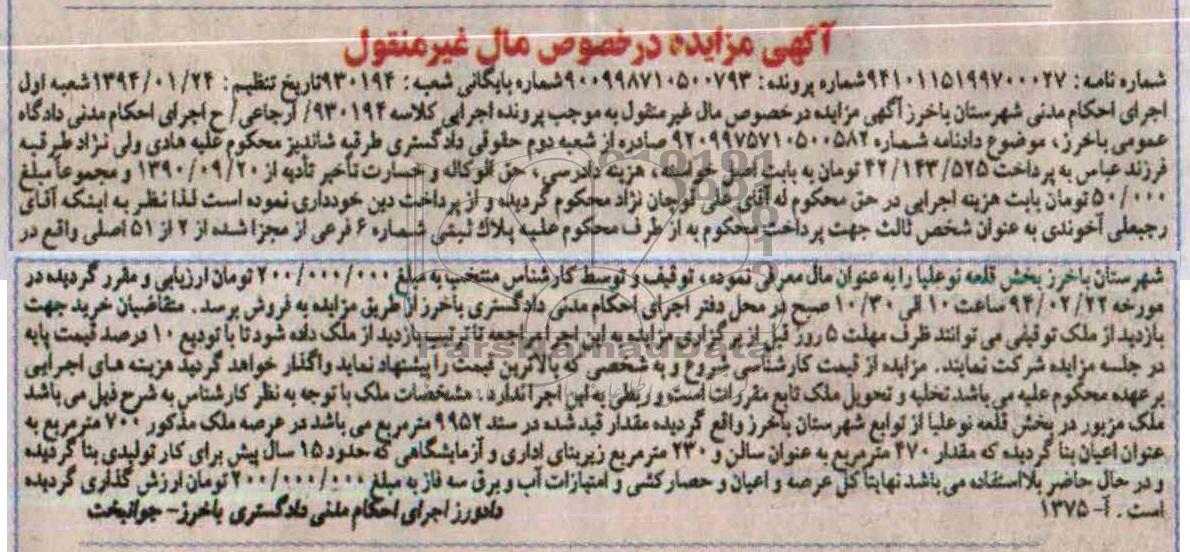 آگهی مزایده درخصوص مال غیرمنقول
شماره نامه: ۹۴۱۰۱۱۵۱۹۹۷۰۰۰۲۷ شماره پرونده: ۹۰۰۹۹۸۷۱۰۵۰۰۷۹۳ شماره بایگانی شعبه: ۹۳۰۱۹۴ تاریخ تنظیم: ۱۳۹۴/۰۱/۲۴ شعبه اول
اجرای احکام مدنی شهرستان باخرز آگهی مزایده درخصوص مال غیرمنقول به موجب پرونده اجرایی کلاسه ۹۳۰۱۹۴/ ارجاعی/ ح اجرای احکام مدنی دادگاه
عمومی باخرز، موضوع دادنامه شماره ۹۲۰۹۹۷۵۷۱۰۵۰۰۵۸۲ صادره از شعبه دوم حقوقی دادگستری طرقبه شاندیز محکوم علیه هادی ولی نژاد طرقبه
فرزند عباس به پرداخت ۴۲/۱۴۳/۵۲۵ تومان به بابت اصل خواسته، هزینه دادرسی، حق الوکاله و خسارت تأخیر تأدیه از ۱۳۹۰/۰۹/۲۰ و مجموعاً مبلغ
۵۰/۰۰۰ تومان بابت هزینه اجرایی در حق محکوم له آقای علی قوچان نژاد محکوم گردیده و از پرداخت دین خودداری نموده است لذا نظر به اینکه آقای
رجبعلی آخوندی به عنوان شخص ثالث جهت پرداخت محکوم به از طرف محکوم علیه پلاک ثبتی شماره ۶ فرعی از مجزا شده از ۲ از ۵۱ اصلی واقع در
شهرستان باخرز بخش قلعه نوعلیا را به عنوان مال معرفی نموده، توقیف و توسط کارشناس منتخب به مبلغ ۲۰۰/۰۰۰/۰۰۰ تومان ارزیابی و مقرر گردیده در
مورخه ۹۴/۰۲/۲۲ ساعت ۱۰ الی ۱۰/۳۰ صبح در محل دفتر اجرای احکام مدنی دادگستری باخرز از طریق مزایده به فروش برسد. متقاضیان خرید جهت
بازدید از ملک توقیفی می توانند ظرف مهلت ۵ روز قبل از برگزاری مزایده به این اجرا مراجعه تا ترتیب بازدید از ملک داده شود تا با تودیع ۱۰ درصد قیمت پایه
در جلسه مزایده شرکت نمایند. مزایده از قیمت کارشناسی شروع و به شخصی که بالاترین قیمت را پیشنهاد نماید واگذار خواهد گردید هزینه های اجرایی
برعهده محکوم علیه می باشد تخلیه و تحویل ملک تابع مقررات است و ربطی به این اجرا ندارد. مشخصات ملک با توجه به نظر کارشناس به شرح ذیل می باشد
ملک مزبور در بخش قلعه نوعلیا از توابع شهرستان باخرز واقع گردیده مقدار قید شده در سند ۹۹۵۲ مترمربع می باشد در عرصه ملک مذکور ۷۰۰ مترمربع به
عنوان اعیان بنا گردیده که مقدار ۴۷۰ مترمربع به عنوان سالن و ۲۳۰ مترمربع زیربنای اداری و آزمایشگاهی که حدود ۱۵ سال پیش برای کار تولیدی بنا گردیده
و در حال حاضر بلااستفاده می باشد نهایتا کل عرصه و اعیان و حصارکشی و امتیازات آب و برق سه فاز به مبلغ ۲۰۰/۰۰۰/۰۰۰ تومان ارزش گذاری گردیده
است. آ- ۱۳۷۵
دادورز اجرای احکام مدنی دادگستری باخرز- جوانبخت